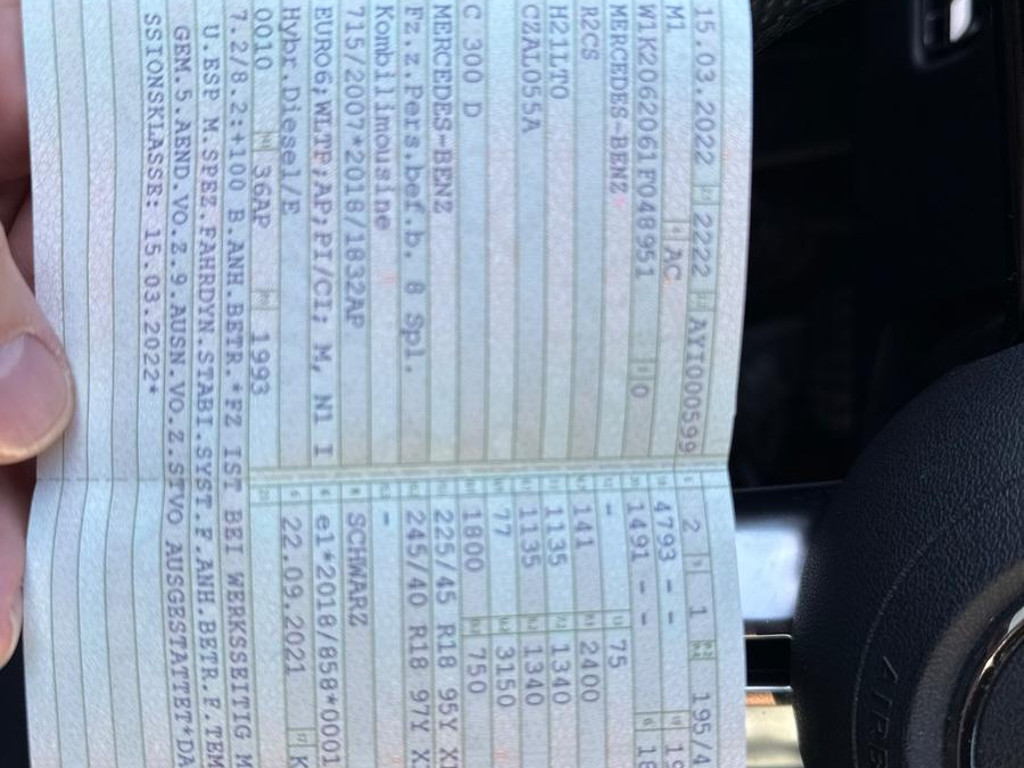 15.03.2022 2222 AYI000599
M1 AC
W1K2062061F048951 0
MERCEDES-BENZ
R2CS
H21LT0
CZAL055A
C 300 D
MERCEDES-BENZ
Fz.z.Pers.bef.b. 8 Spl.
Kombilimousine
715/2007*2018/1832AP
EURO6;WLTP;AP;PI/CI; M, N1 I
Hybr.Diesel/E
0010 36AP 1993
2 1 195/4
4793 - - 19
1491 - - 18
- 75
141 2400
1135 1340
1135 1340
77 3150
1800 750
225/45 R18 95Y X
245/40 R18 97Y X
-
SCHWARZ
e1*2018/858*0001
22.09.2021 K
7.2/8.2:+100 B.ANH.BETR.*FZ IST BEI WERKSSEITIG M
U.ESP M.SPEZ.FAHRDYN.STABI.SYST.F.ANH.BETR.F.TEM
GEM.5.AEND.VO.Z.9.AUSN.VO.Z.STVO AUSGESTATTET*DA
SSIONSKLASSE: 15.03.2022*
AIRB